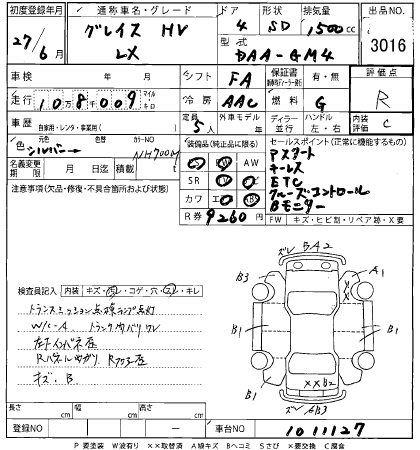 初度登録年月 通称車名・グレード ドア 形状 排気量 出品NO.
27/6月 グレイス HV LX 4 SD 1500cc 3016
型式 DAA-GM4
車検 年 月 シフト FA 保証書 有・無 評価点 R
走行 10万8009 マイル キロ 冷房 AAC 燃料 G
車歴 自家用・レンタ・事業用( ) 定員 5人 外車モデル 年 ディーラー 並行 ハンドル 左・右 内装評価 C
色 元色 シルバー カラーNO NH700M
装備品(純正品に限る) セールスポイント(正常に機能するもの)
名義変更期限 月 日迄 積載 t
AW
SR
カワ
R券 9260円
Pスタート
キーレス
ETC
クルーズコントロール
Bモニター
FW キズ・ヒビ割・リペア跡・X要
注意事項(欠品・修復・不具合箇所および状態)
検査員記入 内装 キズ・汚レ・コゲ・穴・スレ・キレ
トランスミッション点検ランプ点灯
W/C-A トランク内バリワレ
左Fインパネ歪
キズ・B
BA2
B3 A1
B1 B1
B1 B1
XXB2
长さ cm 幅 cm 高さ cm
登録NO 車台NO 1011127
P 要塗装 W波有り ××取替済 A線キズ Bヘコミ Sさび ×要交換 C腐食